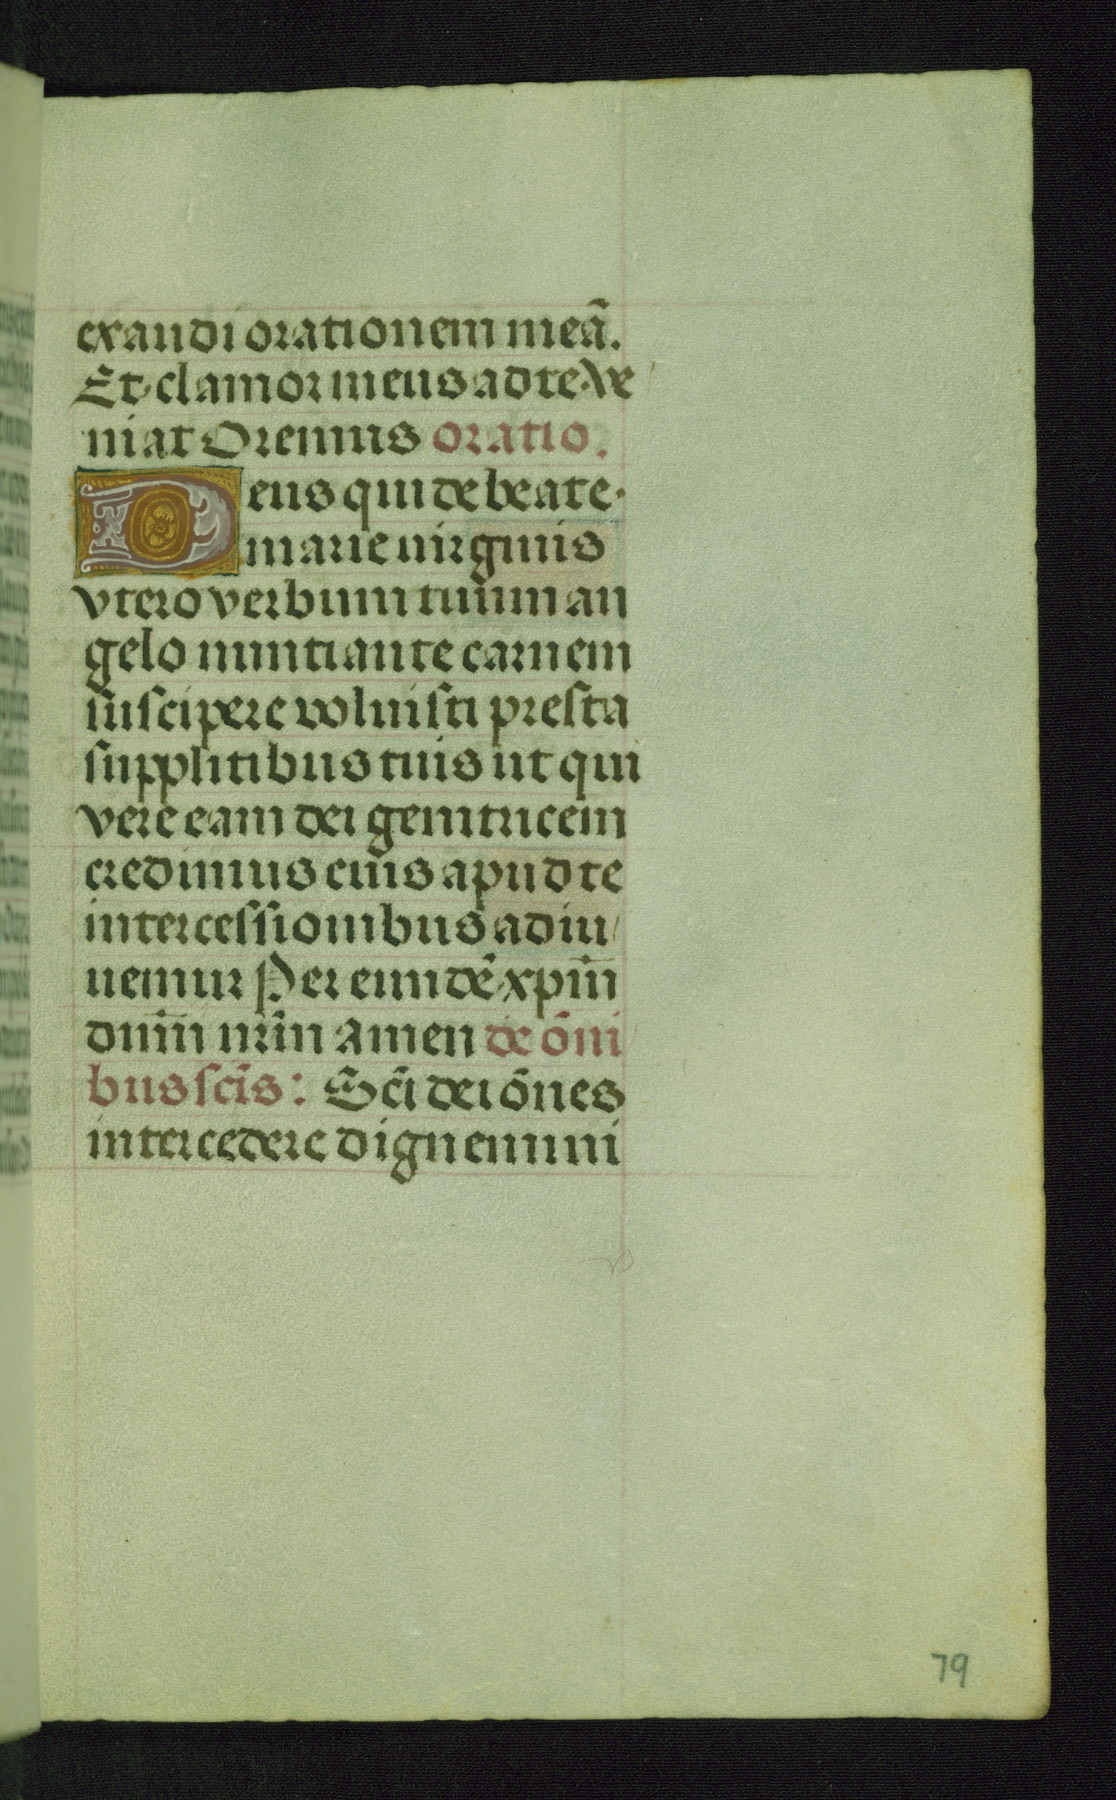 exaudi orationem meā.
Et clamor meus ad te ve
niat Oremus oratio.
Deus qui de beate
marie uirginis
vtero verbum tuum an
gelo nuntiante carnem
suscipere voluisti presta
supplitibus tuis ut qui
vere eam dei genitricem
credimus eius apud te
intercessionibus adiu
uemur Per eundē xp̄m
dn̄m nr̄m amen de ōni
bus sc̄is: Sc̄i dei ōnes
intercedere dignemini
79